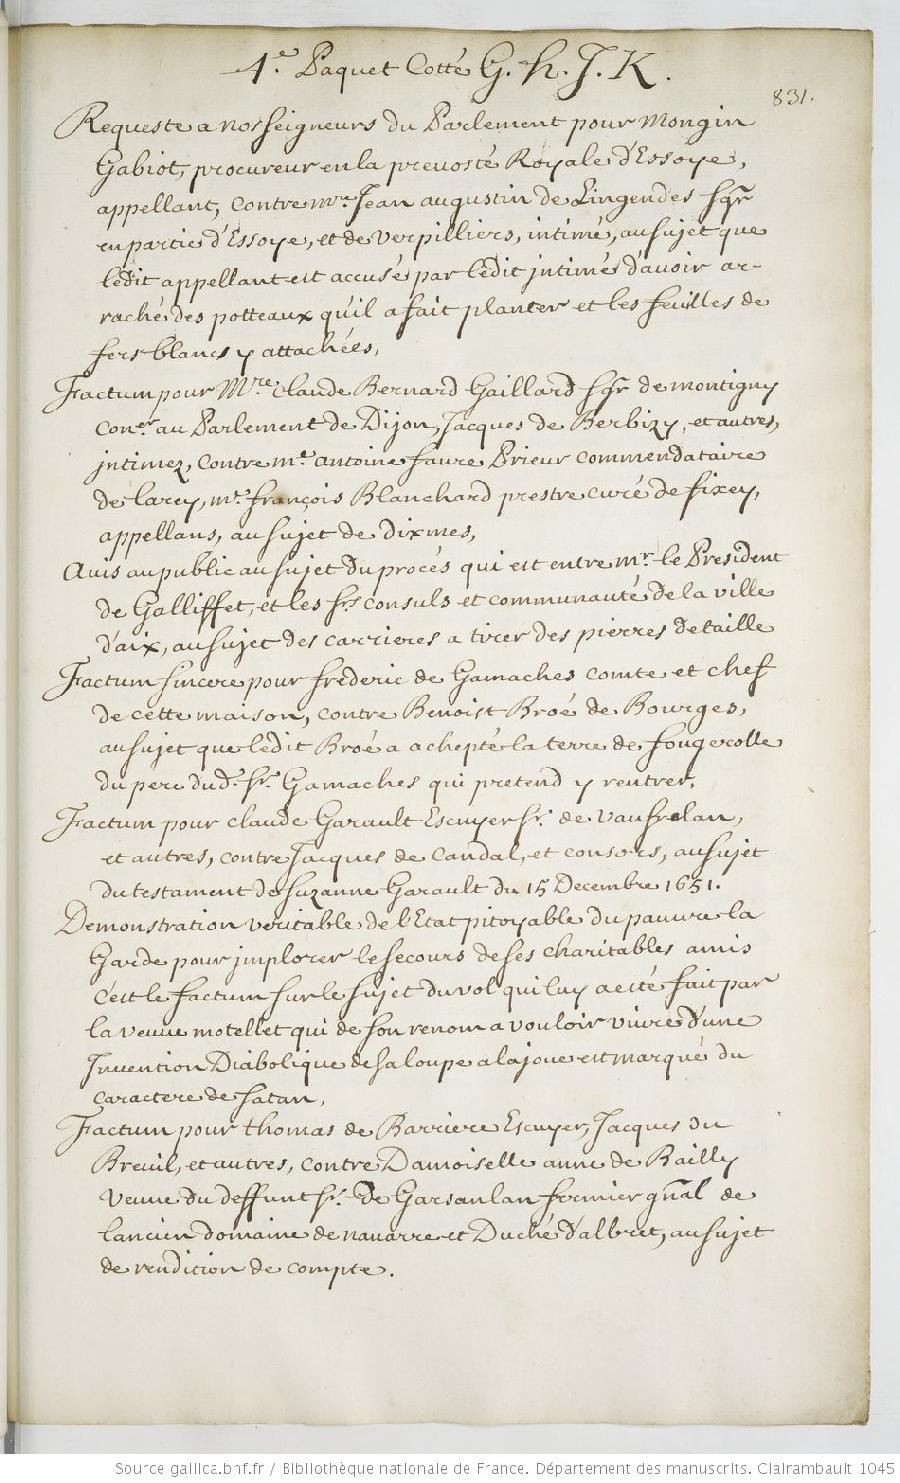 4.e Paquet Cotté G. h. J. K.
831.
Requeste a nosseigneurs du Parlement pour Mongin
Gabiot, procureur en la prevosté Royale d'Essoye,
appellant, contre mre. Jean augustin de Lingendes sgr
en partie d'Essoye, et de verpilliers, intimé, au sujet que
ledit appellant est accusé par ledit jntimé d'avoir ar-
raché des potteaux qu'il a fait planter et les feuilles de
fers blancs y attachées,
Factum pour Mre. Claude Bernard Gaillard sgr de montigny
coner. au Parlement de Dijon, Jacques de Berbizy, et autres,
jntimez, contre me. antoine faure Prieur commendataire
de larey, me. françois Blanchard prestre curé de fixey,
appellans, au sujet de dixmes,
Avis au public au sujet du procés qui est entre mr. le President
de Galliffet, et les srs consuls et communauté de la ville
d'aix, au sujet des carrieres a tirer des pierres de taille
Factum sincere pour frederic de Gamaches comte et chef
de cette maison, contre Benoist Broé de Bourges,
au sujet que ledit Broé a achepté la terre de fougerolle
du pere dud. sr. Gamaches qui pretend y rentrer,
Factum pour claude Garault Escuyer sr. de vaufrelan,
et autres, contre Jacques de Candal, et consors, au sujet
du testament de suzanne Garault du 15 Decembre 1651.
Demonstration veritable de l'Etat pitoyable du pauvre la
Garde pour jmplorer le secours de ses charitables amis
c'est le factum sur le sujet du vol qui luy a esté fait par
la veuve motellet qui de son renom a vouloir vivre d'une
Jnvention Diabolique de sa loupe a la joue est marqué du
caractere de satan,
Factum pour thomas de Barriere Escuyer, Jacques du
Breuil, et autres, contre Damoiselle anne de Bailly
veuve du deffunt sr. de Garsanlan fermier gnãl de
l'ancien domaine de navarre et Duché d'albret, au sujet
de rendition de compte.
Source gallica.bnf.fr / Bibliothèque nationale de France. Département des manuscrits. Clairambault 1045